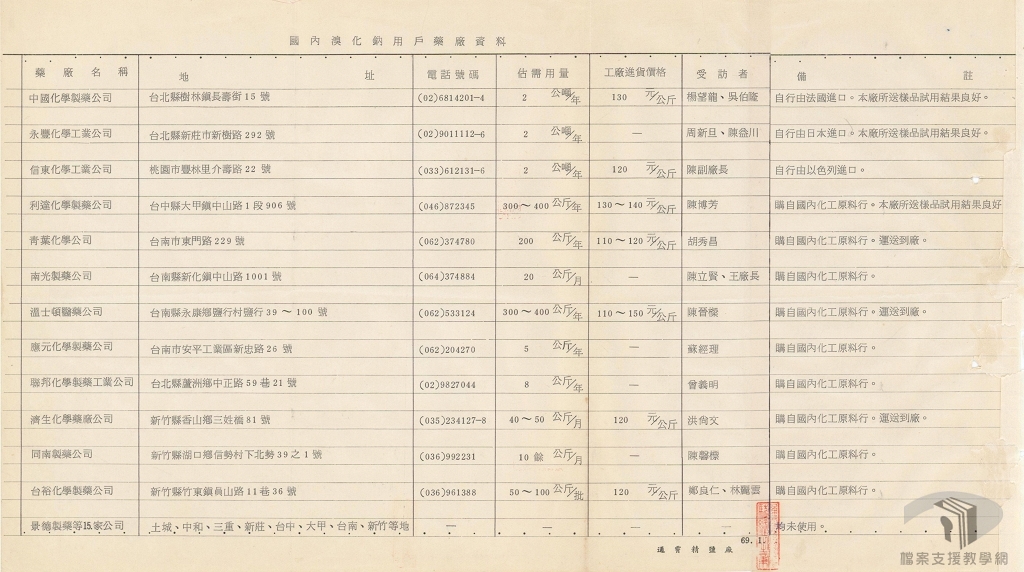 國內溴化鈉用戶藥廠資料
藥廠名稱 地址 電話號碼 估需用量 工廠進貨價格 受訪者 備註
中國化學製藥公司 台北縣樹林鎮長壽街15號 (02)6814201-4 2 公噸/年 130 元/公斤 楊望龍、吳伯隆 自行由法國進口。本廠所送樣品試用結果良好。
永豐化學工業公司 台北縣新莊市新樹路292號 (02)9011112-6 2 公噸/年 — 周新旦、陳益川 自行由日本進口。本廠所送樣品試用結果良好。
信東化學工業公司 桃園市豐林里介壽路22號 (033)612131-6 2 公噸/年 120 元/公斤 陳副廠長 自行由以色列進口。
利達化學製藥公司 台中縣大甲鎮中山路1段906號 (046)872345 300~400 公斤/年 130~140 元/公斤 陳博芳 購自國內化工原料行。本廠所送樣品試用結果良好
青葉化學公司 台南市東門路229號 (062)374780 200 公斤/年 110~120 元/公斤 胡秀昌 購自國內化工原料行。運送到廠。
南光製藥公司 台南縣新化鎮中山路1001號 (064)374884 20 公斤/月 — 陳立賢、王廠長 購自國內化工原料行。
溫士頓醫藥公司 台南縣永康鄉鹽行村鹽行39~100號 (062)533124 300~400 公斤/年 110~150 元/公斤 陳晉樑 購自國內化工原料行。運送到廠。
應元化學製藥公司 台南市安平工業區新忠路26號 (062)204270 5 公斤/年 — 蘇經理 購自國內化工原料行。
聯邦化學製藥工業公司 台北縣蘆洲鄉中正路59巷21號 (02)9827044 8 公斤/年 — 曾義明 購自國內化工原料行。
濟生化學藥廠公司 新竹縣香山鄉三姓橋81號 (035)234127-8 40~50 公斤/月 120 元/公斤 洪尙文 購自國內化工原料行。運送到廠。
同南製藥公司 新竹縣湖口鄉信勢村下北勢39之1號 (036)992231 10餘 公斤/月 — 陳馨標 購自國內化工原料行。
台裕化學製藥公司 新竹縣竹東鎮員山路11巷36號 (036)961388 50~100 公斤/批 120 元/公斤 鄭良仁、林麗雲 購自國內化工原料行。
景德製藥等15.家公司 土城、中和、三重、新莊、台中、大甲、台南、新竹等地 — — — — 均未使用。
69.1.
通霄精鹽廠
檔案支援教學網